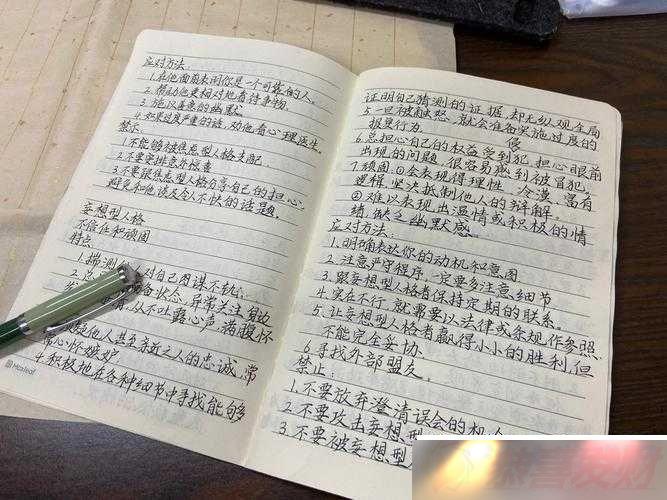 应对方法:
1.在他面前表明你是一个可靠的人。
2.帮助他更相对地看待事物
3.施以善意的幽默
4.如果过度严重的话,劝他看心理医生。
禁忌:
1.不能够被焦虑型人格支配
2.不要安排意外检查
3.不要跟焦虑型人格分享自己的担心,
避免和他谈及令人不快的话题。
妄想型人格
不信任和顽固
特点
1.揣测
对自己图谋不轨;
2.
备状态,异常关注身边
从不吐露心声,满腹怀
他人甚至亲近之人的忠诚,常
常心怀嫉妒
4.积极地在各种细节中寻找能够
Hasleaf
证明自己猜测的证据,却无纵观全局
5.一旦被触怒,就会准备实施过度的
报复行为。
侵
6.总担心自己的权益受到犯,担心眼前
出现的问题,很容易感到被冒犯。
7.顽固:①会表现得理性、冷漠、富有
逻辑,坚决抵制他人的辩解。
②难以表现出温情或积极的情
绪,缺乏幽默感。
应对方法:
1.明确表达你的动机和意图
2.注意严守程序,一定要多注意细节
3.跟妄想型人格者保持定期的联系。
4.实在不行,就需要以法律或条规作参照
5.让妄想型人格者赢得小小的胜利,但
不能完全妥协.
6.寻找外部盟友。
禁止:
1.不要放弃澄清误会的机
2.不要攻击妄想型
3.不要被妄想型